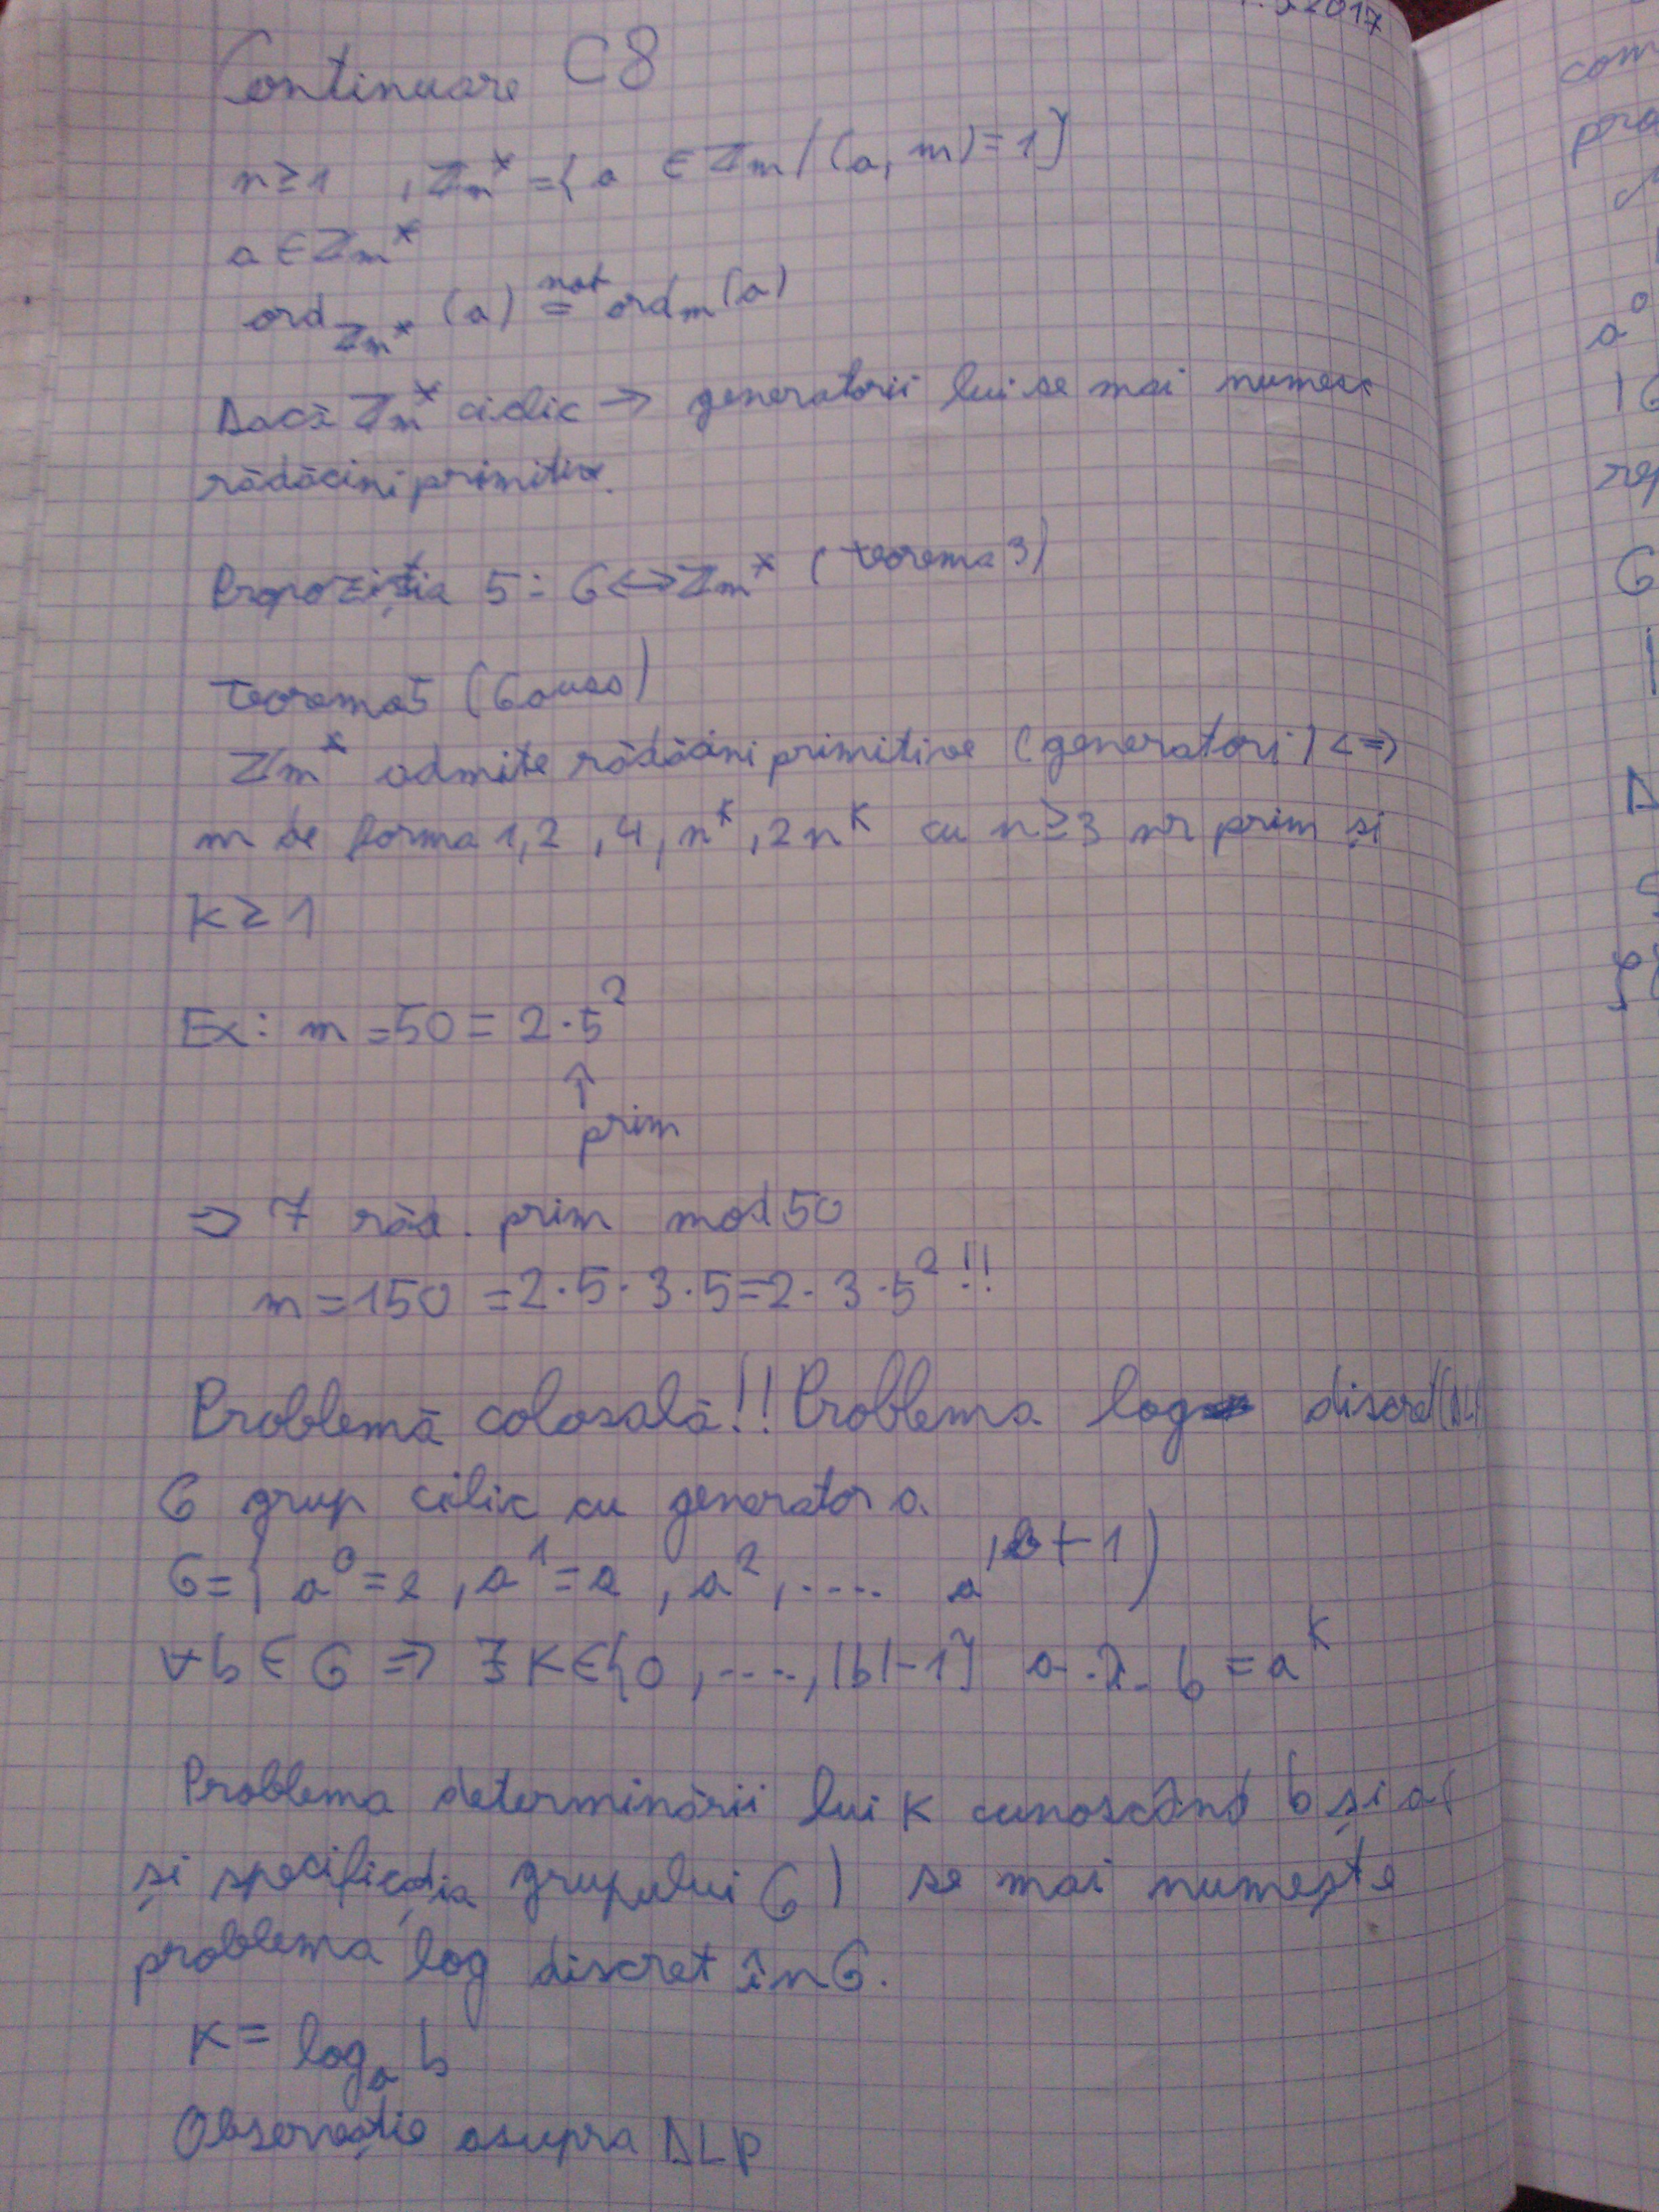 .5.2017
Continuare C8
n≥1 , Zm* = { a ∈ Zm / (a, m) = 1 }
a ∈ Zm*
ord Zm* (a) =not ordm (a)
Dacă Zm* ciclic → generatorii lui se mai numesc
rădăcini primitive.
Propoziția 5: G <=> Zm* ( teorema 3)
Teorema 5 (Gauss)
Zm* admite rădăcini primitive (generatori) <=>
m de forma 1, 2 , 4, n^k , 2n^k cu n≥3 nr prim și
k ≥ 1
Ex: m = 50 = 2 · 5^2
↑
prim
=> 7 răd. prim mod 50
m = 150 = 2·5·3·5 = 2·3·5^2 !!
Problemă colosală!! Problema log discret (DL)
G grup cilic cu generator a
G = { a^0 = e , a^1 = a , a^2 , .... a
∀ b ∈ G => ∃ K ∈ {0 , ...., |b| - 1} a.î. b = a^K
Problema determinării lui K cunoscând b și a (
și specificația grupului G ) se mai numește
problema log discret în G.
K = log a b
Observație asupra DLP
com
a^0
G